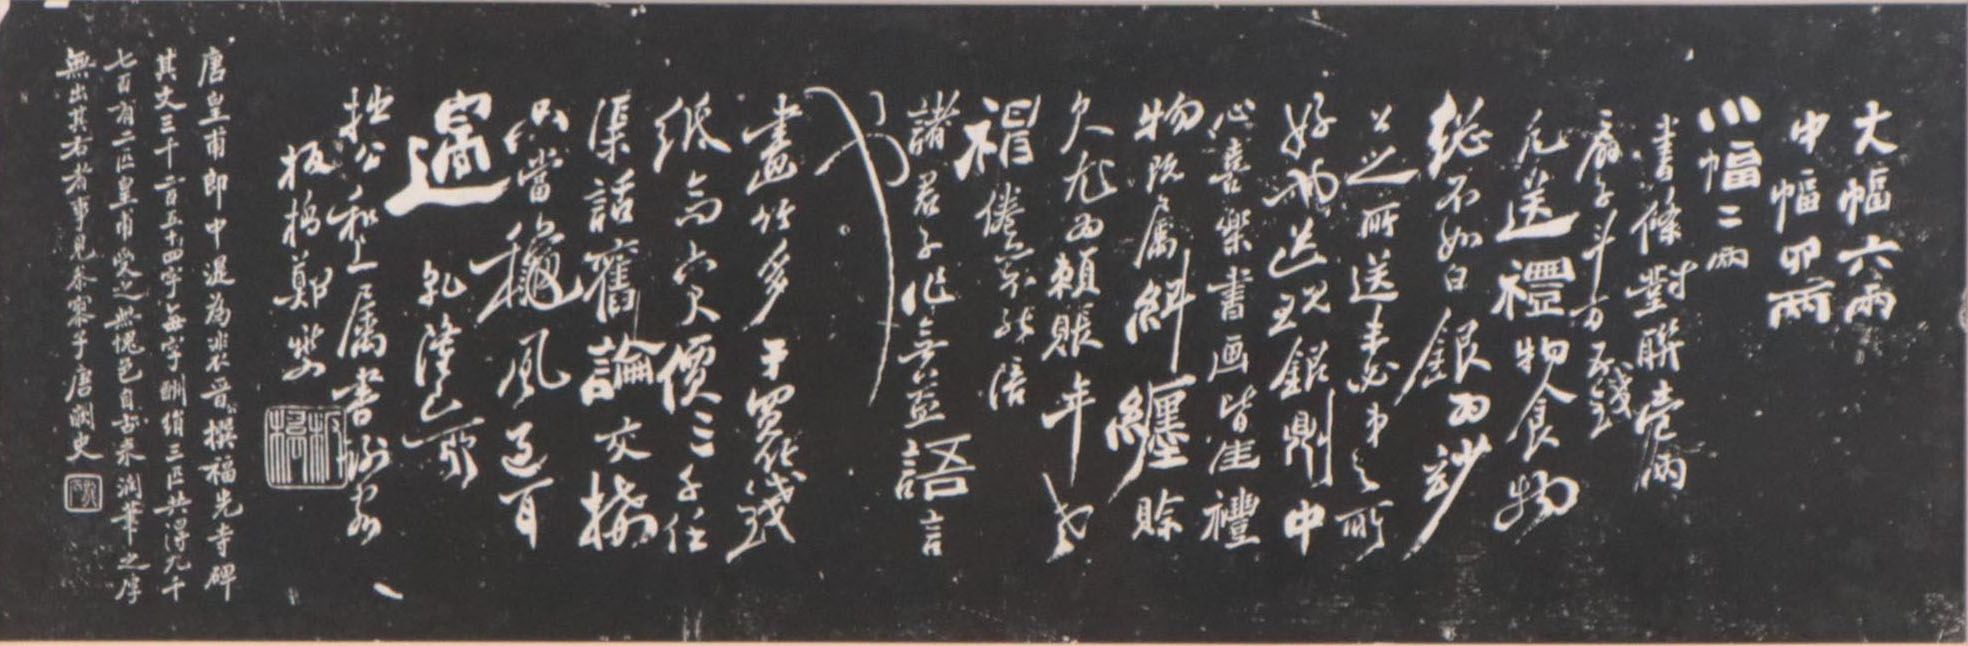 大幅六兩
中幅四兩
小幅二兩
書條對聯壹兩
扇子斗方五錢
凡送禮物食物
総不如白銀為妙
公之所送未必弟之所
好也送現銀則中
心喜樂書画皆佳禮
物既属糾纏賒
欠尤為賴賬年老
神倦亦不能陪
諸君子作無益語言
也
畫竹多于買竹錢
紙高六尺價三千任
渠話舊論交接
只當秋風過耳
邊 乾隆己卯
拙公和上属書謝客
板橋鄭燮
板橋
唐皇甫郎中湜為裴晉公撰福光寺碑
其文三千二百五十四字每字酬絹三匹共得九千
七百有二匹皇甫受之無愧色自古來潤筆之厚
無出其右者事見參寥子唐闕史